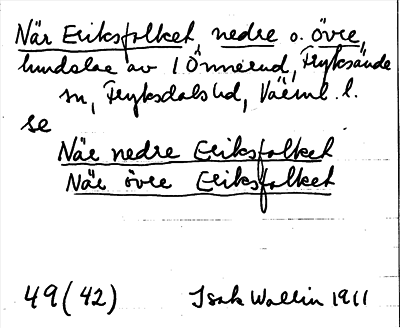 När Eriksfolket nedre o. övre,
hemdelar av 1 Önnerud, Fryksände
sn, Fryksdals hd, Värml. l.
se
När nedre Eriksfolket
När övre Eriksfolket
49 (42) Isak Wallin 1911